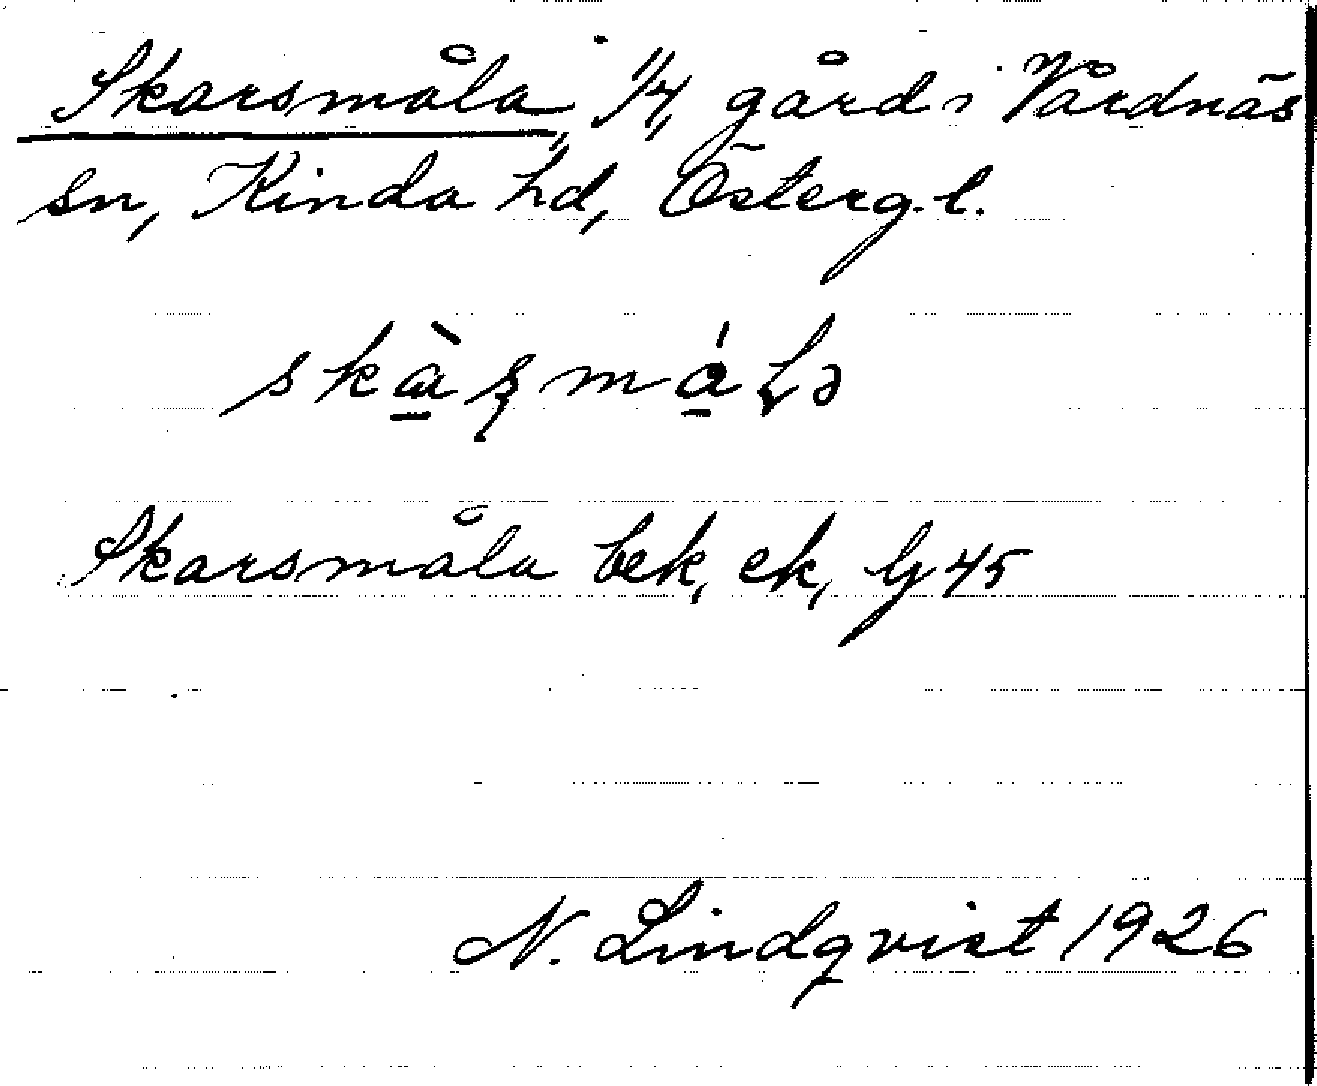 Skarsmåla, 1/4 gård i Vårdnäs
sn, Kinda hd, Österg.l.
skàʂmálə
Skarsmåla bek, ek, lj 45
N. Lindqvist 1926